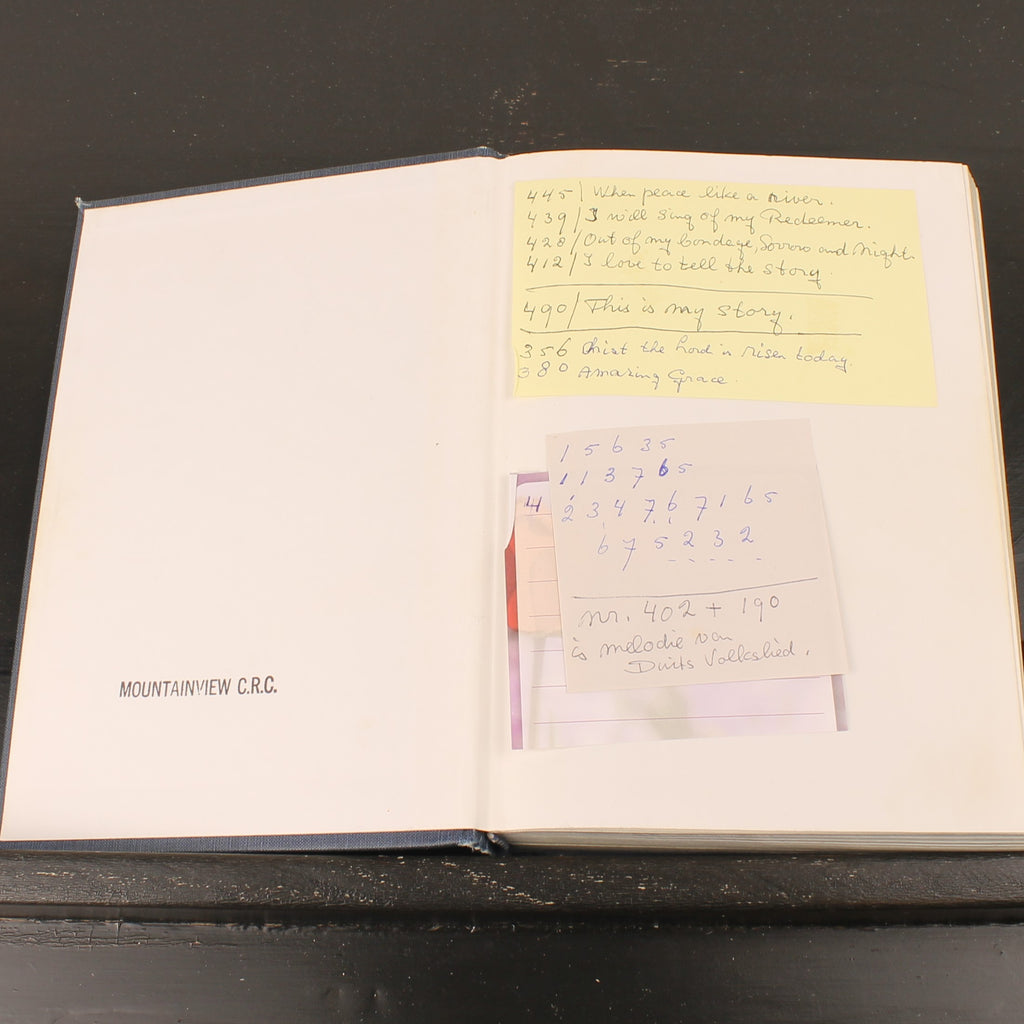 MOUNTAINVIEW C.R.C.
445/ When peace like a river.
439/ I will sing of my Redeemer.
428/ Out of my bondage, Sorrow and Night.
412/ I love to tell the story.
490/ This is my story.
356 Christ the Lord is risen today.
380 Amazing Grace.
1 5 6 3 5
1 1 3 7 6 5
2 3 4 7 6 7 1 6 5
6 7 5 2 3 2
nr. 402 + 190
is melodie van
Duits Volkslied.